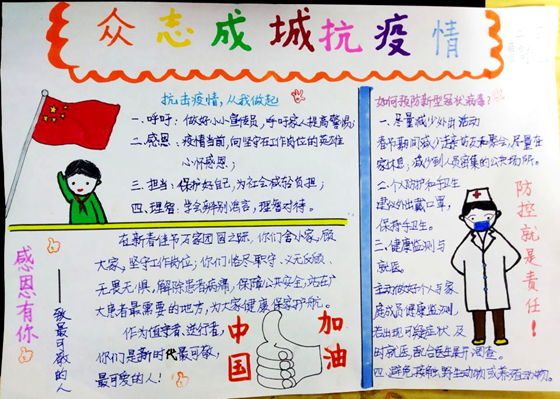 众志成城抗疫情
抗击疫情，从我做起
一、呼吁：做好小小宣传员，呼吁家人提高警惕；
二、感恩：疫情当前，向坚守在工作岗位的英雄
心怀感恩；
三、担当：保护好自己，为社会减轻负担；
四、理智：学会辨别谣言，理智对待。
在新春佳节万家团圆之际，你们舍小家，顾
大家，坚守工作岗位；你们恪尽职守、义无反顾、
无畏无惧，解除患者病痛，保障公共安全，站在广
大患者最需要的地方，为大家健康保家护航。
作为值守者、逆行者，
你们是新时代最可敬、
最可爱的人！
感恩有你
——致最可敬的人
中国
加油
如何预防新型冠状病毒？
一、尽量减少外出活动
春节期间减少走亲访友和聚会，尽量在
家休息；减少到人员密集的公共场所。
二、个人防护和卫生
建议外出戴口罩，
保持手卫生。
三、健康监测与
就医。
主动做好个人与家
庭成员健康监测，
若出现可疑症状及
时就医，配合医生展开调查。
四、避免接触野生动物或养殖动物。
防控就是责任！